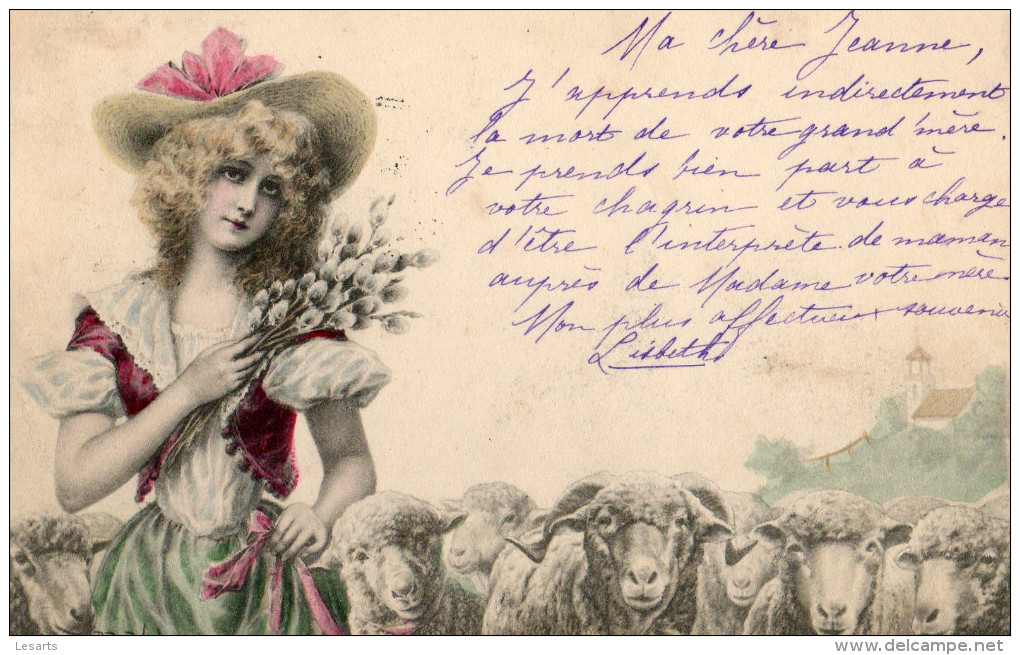 Ma chère Jeanne,
J'apprends indirectement
la mort de votre grand'mère.
Je prends bien part à
votre chagrin et vous charge
d'être l'interprète de maman
auprès de Madame votre mère
Mon plus affectueux souvenir
Lisbeth
Lesarts
www.delcampe.net